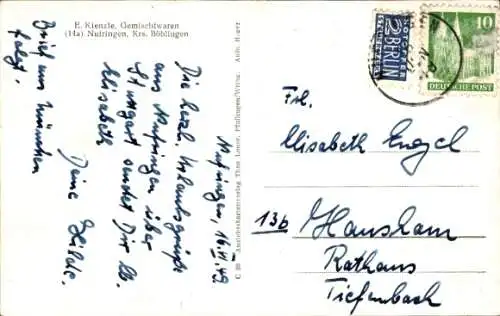 E. Kienzle, Gemischtwaren
(14a) Nufringen, Krs. Böblingen
Nufringen, 16.VI.49
Die herzl. Urlaubsgrüße
aus Nufringen über
Stuttgart sendet Dir lb.
Elisabeth
Deine Hilde.
Brief aus München
folgt.
C 20 Ansichtskartenverlag Theo Lenze, Pfullingen/Württ.
NOTOPFER
2 BERLIN
STEUERMARKE
10
DEUTSCHE POST
Frl.
Elisabeth Engel
13b Hausham
Rathaus
Tiefenbach